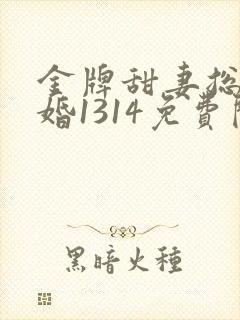 金牌甜妻总
婚1314免費
黑暗火種